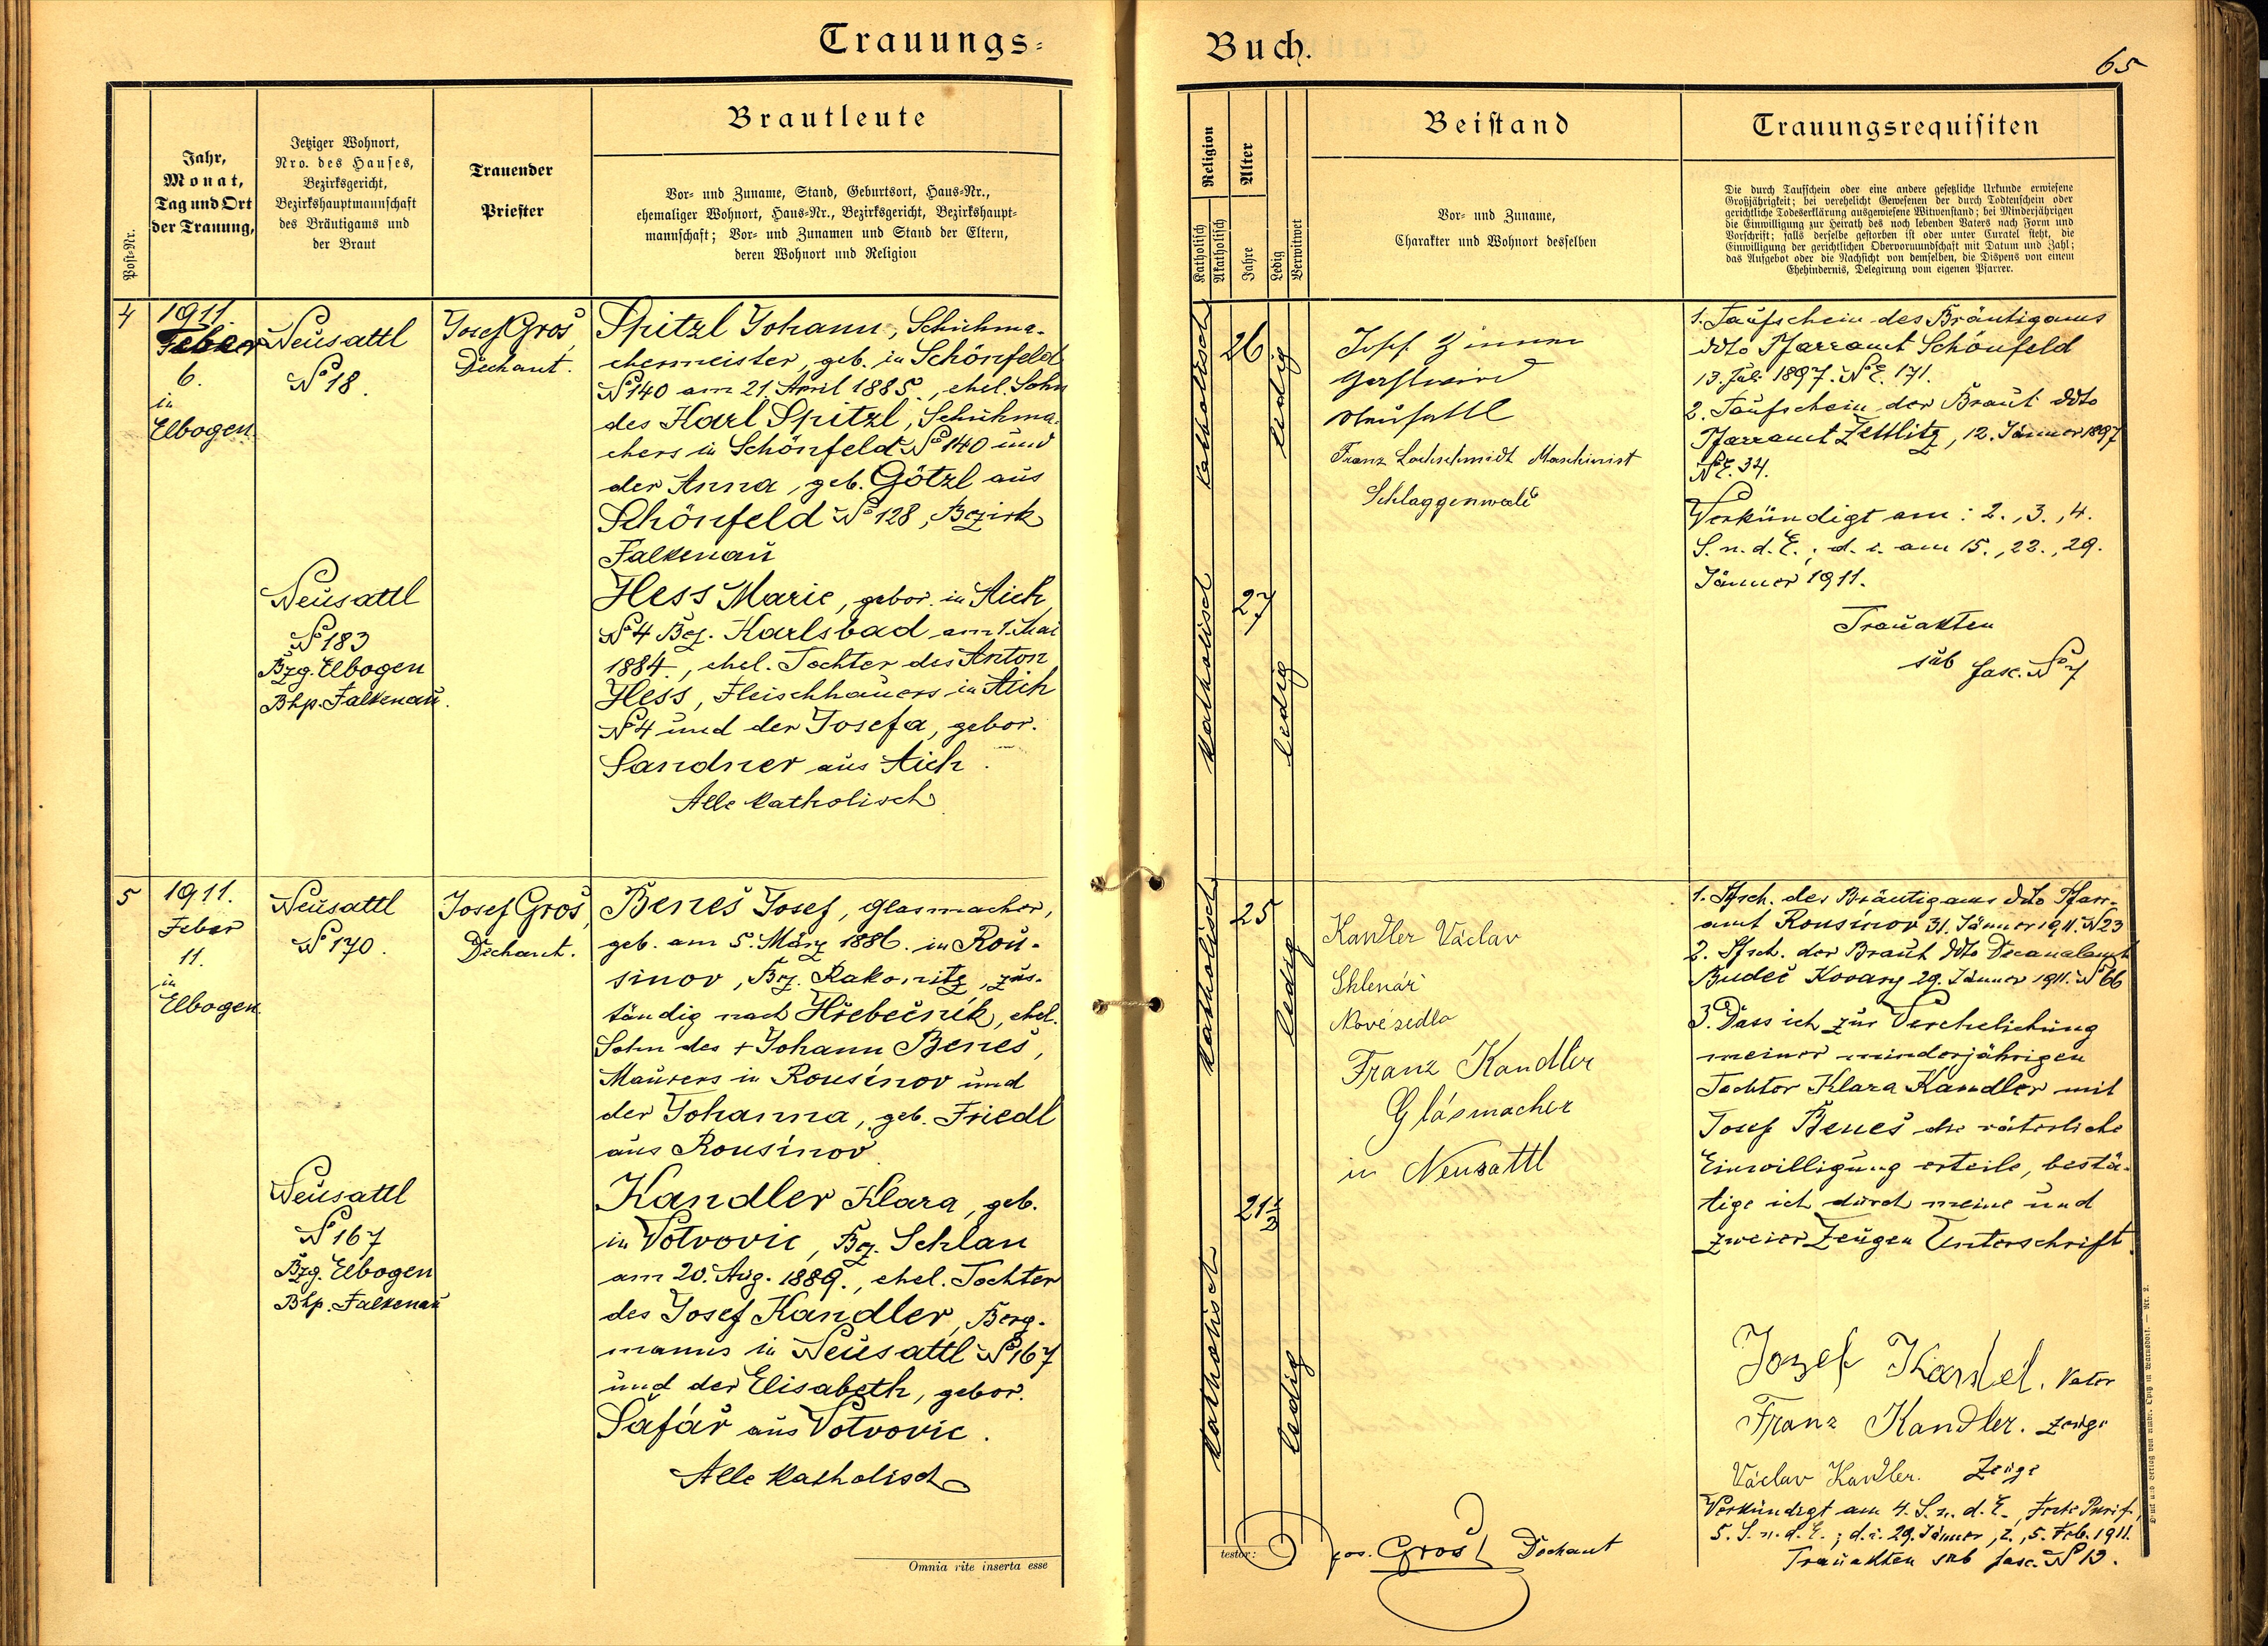 Trauungs-
Buch.
65
Post-Nr.
Jahr,
Monat,
Tag und Ort
der Trauung,
Jetziger Wohnort,
Nro. des Hauses,
Bezirksgericht,
Bezirkshauptmannschaft
des Bräutigams und
der Braut
Trauender
Priester
Brautleute
Vor- und Zuname, Stand, Geburtsort, Haus-Nr.,
ehemaliger Wohnort, Haus-Nr., Bezirksgericht, Bezirkshaupt-
mannschaft; Vor- und Zunamen und Stand der Eltern,
deren Wohnort und Religion
Religion
Katholisch
Akatholisch
Alter
Jahre
Ledig
Verwitwet
Beistand
Vor- und Zuname,
Charakter und Wohnort desselben
Trauungsrequisiten
Die durch Taufschein oder eine andere gesetzliche Urkunde erwiesene
Großjährigkeit; bei verehelicht Gewesenen der durch Todtenschein oder
gerichtliche Todeserklärung ausgewiesene Witwenstand; bei Minderjährigen
die Einwilligung zur Heirath des noch lebenden Vaters nach Form und
Vorschrift; falls derselbe gestorben ist oder unter Curatel steht, die
Einwilligung der gerichtlichen Obervormundschaft mit Datum und Zahl;
das Aufgebot oder die Nachsicht von demselben, die Dispens von einem
Ehehindernis, Delegirung vom eigenen Pfarrer.
4
1911.
Feber
6.
in
Elbogen.
Neusattl
No 18.
Josef Gros,
Dechant.
Spitzl Johann, Schuhma-
chermeister, geb. in Schönfeld
No 140 am 21. April 1885., ehel. Sohn
des Karl Spitzl, Schuhma-
chers in Schönfeld No 140 und
der Anna, geb. Götzl aus
Schönfeld No 128, Bezirk
Falkenau
Neusattl
No 183
Bzg. Elbogen
Bhp. Falkenau.
Hess Marie, gebor. in Aich
No 4 Bez. Karlsbad am 1. Mai
1884., ehel. Tochter des Anton
Hess, Fleischhauers in Aich
No 4 und der Josefa, gebor.
Sandner aus Aich.
Alle katholisch
katholisch
26
ledig
katholisch
27
ledig
Josef Zinner
Gastwirt
Neusattl
Franz Lochschmidt Maschinist
Schlaggenwald
1. Taufschein des Bräutigams
ddto Pfarramt Schönfeld
13. Juli 1897. No E. 171.
2. Taufschein der Braut ddto
Pfarramt Zettlitz, 12. Jänner 1897
No E. 34.
Verkündigt am: 2., 3., 4.
S. n. d. E.; d. i. am 15., 22., 29.
Jänner 1911.
Trauakten
sub fasc. No 7
5
1911.
Feber
11.
in
Elbogen.
Neusattl
No 170.
Josef Gros,
Dechant.
Beneš Josef, Glasmacher,
geb. am 5. März 1886. in Rou-
sinov, Bez. Rakonitz, zus-
tändig nach Hřebečnik, ehel.
Sohn des + Johann Beneš,
Maurers in Rousínov und
der Johanna, geb. Friedl
aus Rousínov
Neusattl
No 167
Bzg. Elbogen
Bhp. Falkenau
Kandler Klara, geb.
in Votvovic, Bez. Schlan
am 20. Aug. 1889., ehel. Tochter
des Josef Kandler, Berg-
manns in Neusattl No 167
und der Elisabeth, gebor.
Šafář aus Votvovic.
Alle katholisch
katholisch
25
ledig
katholisch
21½
ledig
Kandler Václav
Sklenář
Novésedlo
Franz Kandler
Glásmacher
in Neusattl
1. Tfsch. des Bräutigams ddto Pfarr-
amt Rousínov 31. Jänner 1911. No 23
2. Tfsch. der Braut ddto Decanalamt
Budeč Kovary 29. Jänner 1911. No 66
3. Dass ich zur Verehelichung
meiner minderjährigen
Tochter Klara Kandler mit
Josef Beneš die väterliche
Einwilligung erteile, bestä-
tige ich durch meine und
zweier Zeugen Unterschrift.
Jozef Kandel. Vater
Franz Kandler. Zeuge
Václav Kandler. Zeuge
Verkündigt am 4. S. n. d. E., Feste Purif.,
5. S. n. d. E.; d. i. 29. Jänner, 2., 5. Feb. 1911.
Trauakten sub fasc. No 13.
Omnia rite inserta esse
testor:
Jos. Gros Dechant